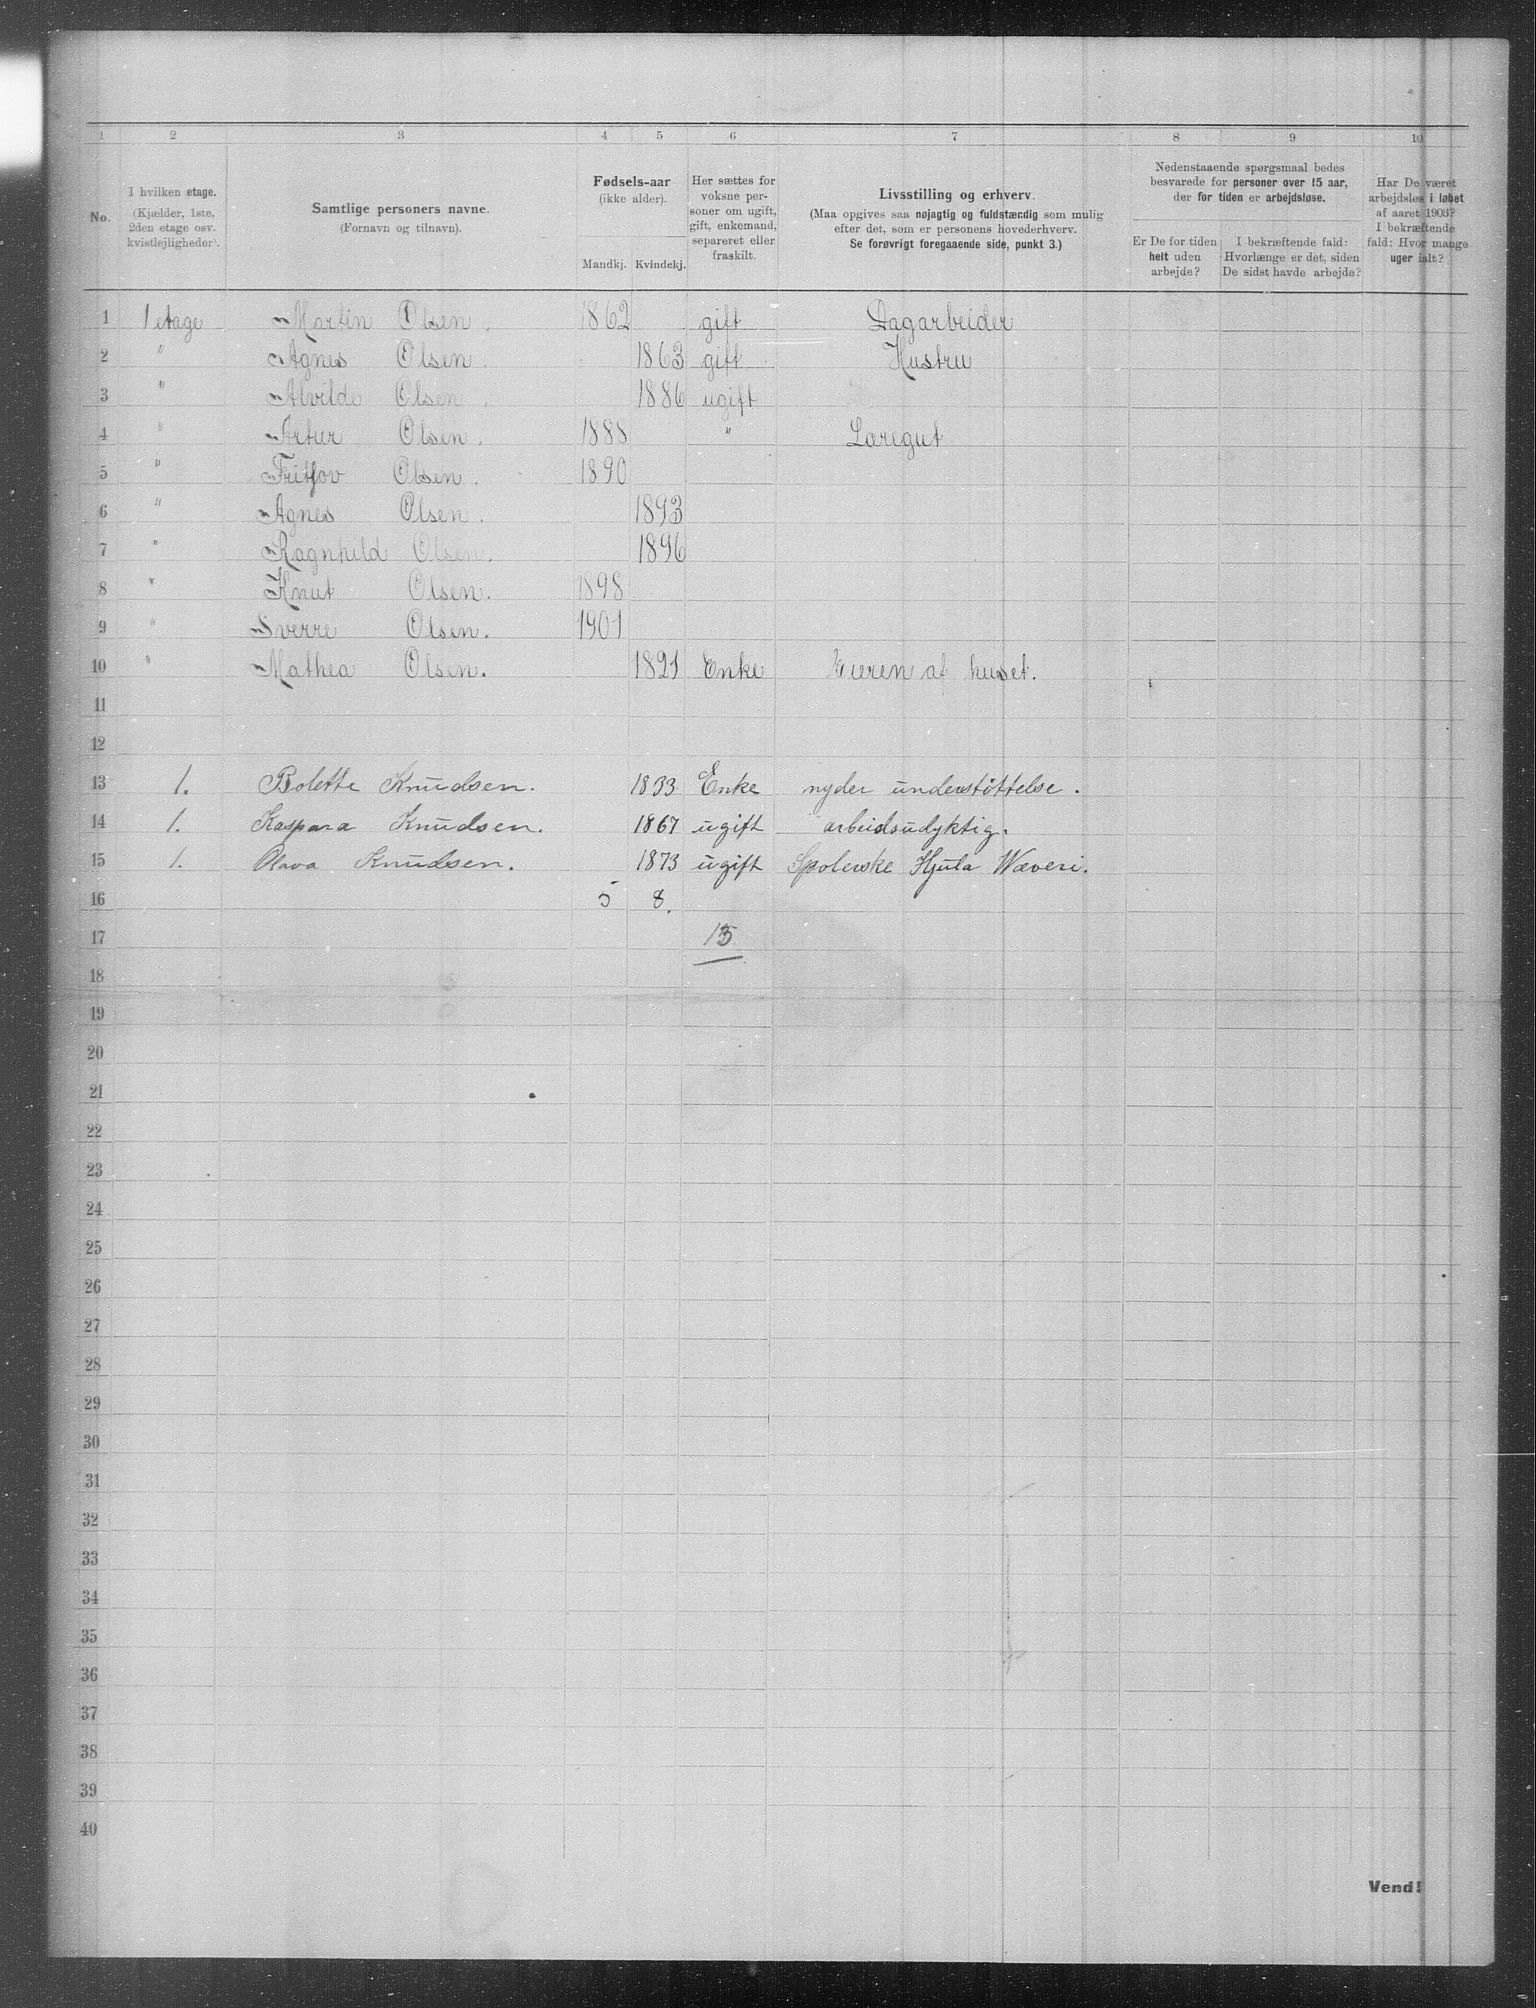 1 2 3 4 5 6 7 8 9 10
No.
I hvilken etage.
(Kjælder, 1ste,
2den etage osv.
kvistlejligheder).
Samtlige personers navne.
(Fornavn og tilnavn).
Fødsels-aar
(ikke alder).
Mandkj. Kvindekj.
Her sættes for
voksne per-
soner om ugift,
gift, enkemand,
separeret eller
fraskilt.
Livsstilling og erhverv.
(Maa opgives saa nøjagtig og fuldstændig som mulig
efter det, som er personens hovederhverv.
Se forøvrigt foregaaende side, punkt 3.)
Nedenstaaende spørgsmaal bedes
besvarede for personer over 15 aar,
der for tiden er arbejdsløse.
Er De for tiden
helt uden
arbejde?
I bekræftende fald:
Hvorlænge er det, siden
De sidst havde arbejde?
Har De været
arbejdsløs i løbet
af aaret 1903?
I bekræftende
fald: Hvor mange
uger ialt?
1 1 etage Martin Olsen. 1862 gift Dagarbeider
2 " Agnes Olsen. 1863 gift Hustru
3 " Alvilde Olsen. 1886 ugift
4 " Artur Olsen. 1888 " Læregut
5 " Fritjov Olsen. 1890
6 " Agnes Olsen. 1893
7 " Ragnhild Olsen. 1896
8 " Knut Olsen. 1898
9 " Sverre Olsen. 1901
10 " Mathea Olsen. 1821 Enke Eieren af huset.
11
12
13 1. Bolette Knudsen. 1833 Enke nyder understöttelse.
14 1. Kaspara Knudsen. 1867 ugift arbeidsudyktig.
15 1. Olava Knudsen. 1873 ugift Spolerske Hjula Wæveri.
16 5 8.
17 13
18
19
20
21
22
23
24
25
26
27
28
29
30
31
32
33
34
35
36
37
38
39
40
Vend!